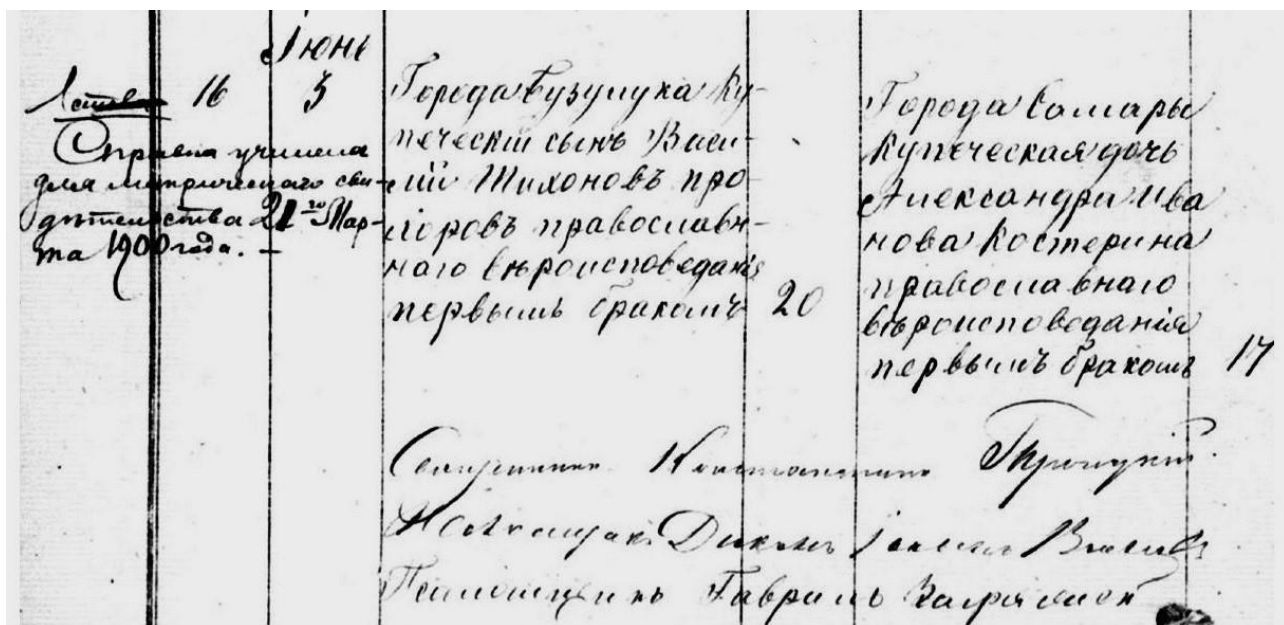 Іюнь
16 3
Справка учинена
для метрическаго сви-
дѣтельства 21го Мар-
та 1900 года.
Города Бузулука Ку-
печескій сынъ Васи-
лій Тихоновъ Про-
хоровъ православ-
наго вѣроисповеданія
первымъ бракомъ 20
Города Самары
Купеческая дочь
Александра Ива
нова Костерина
православнаго
вѣроисповеданія
первымъ бракомъ 17
Священникъ Константинъ Троицкій
Діаконъ
Псаломщикъ Гавріилъ